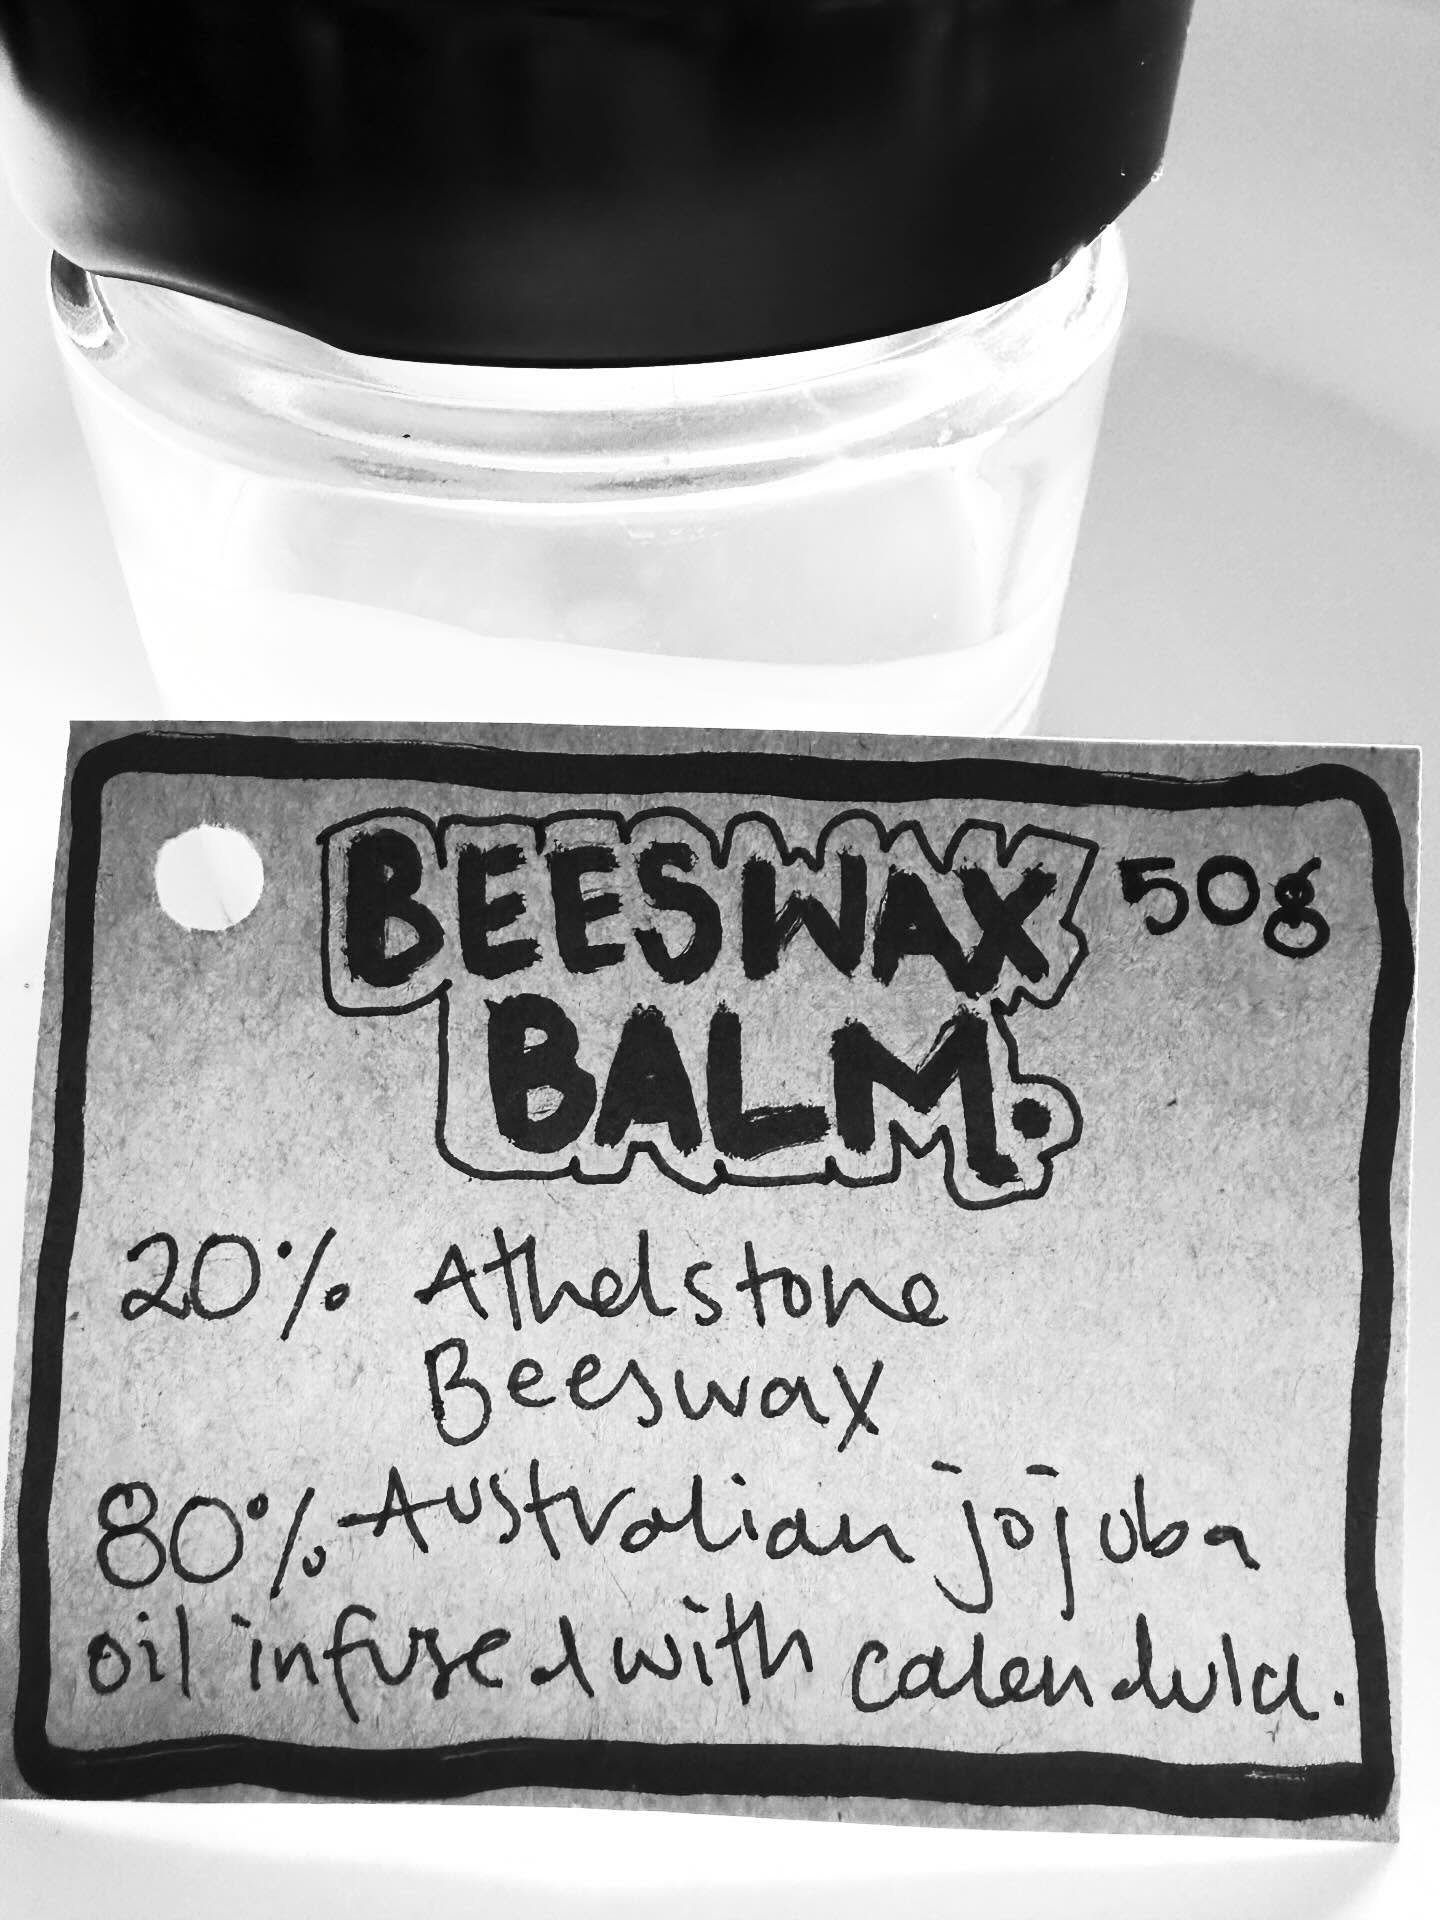 BEESWAX 50g
BALM.
20% Athelstone
Beeswax
80% Australian jojoba
oil infused with calendula.